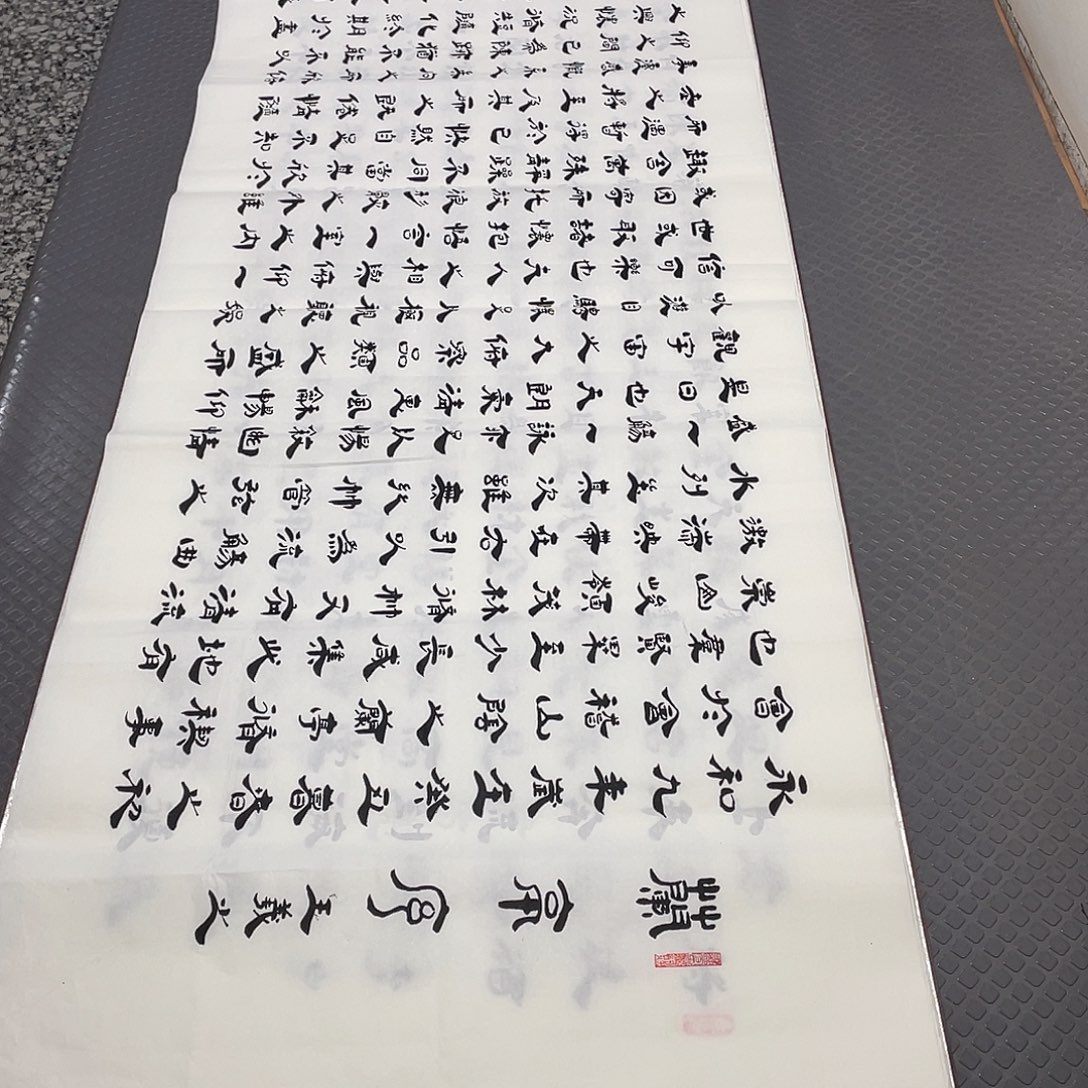 蘭亭序王羲之
永和九年歲在癸丑暮春之初
會於會稽山陰之蘭亭脩禊事
也羣賢畢至少長咸集此地有
崇山峻領茂林脩竹又有清流
激湍映帶左右引以為流觴曲
水列坐其次雖無絲竹管弦之
盛一觴一詠亦足以暢敘幽情
是日也天朗氣清惠風和暢仰
觀宇宙之大俯察品類之盛所
以遊目騁懷足以極視聽之娛
信可樂也夫人之相與俯仰一
世或取諸懷抱悟言一室之內
或因寄所託放浪形骸之外雖
趣舍萬殊靜躁不同當其欣於
所遇暫得於己快然自足不知